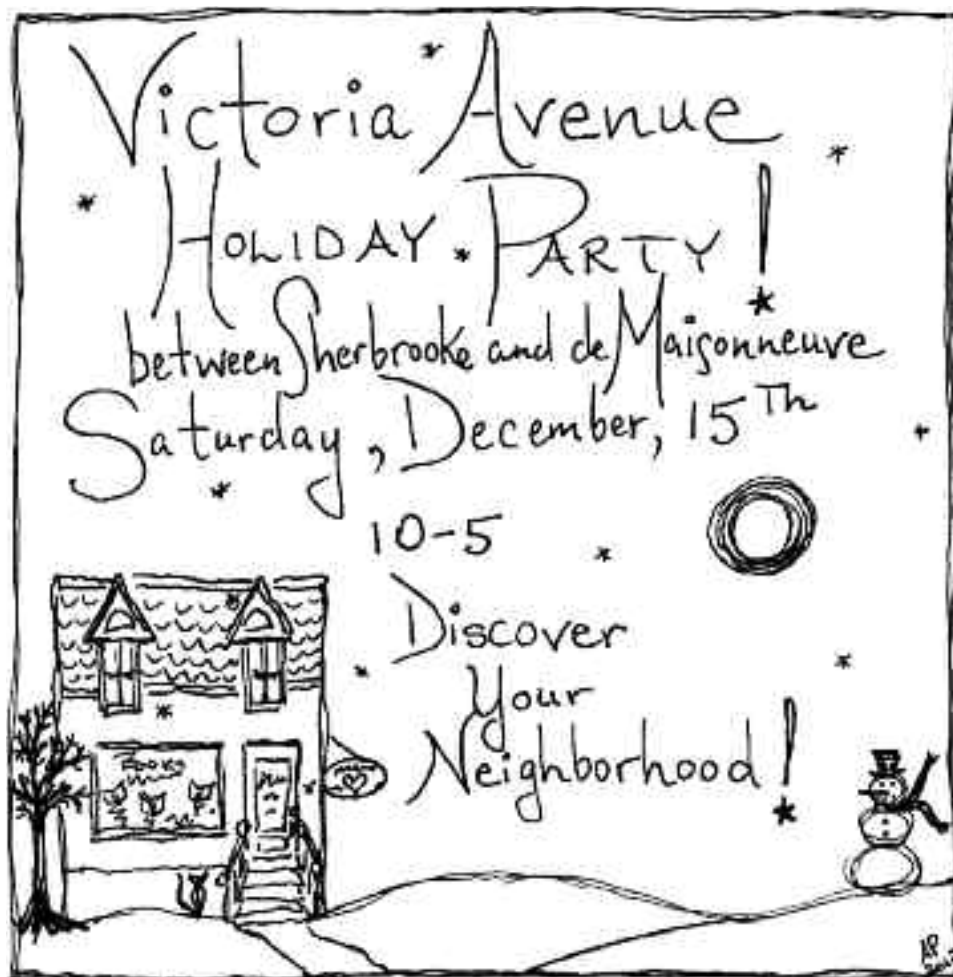 Victoria Avenue
HOLIDAY PARTY!
between Sherbrooke and de Maisonneuve
Saturday, December, 15Th
10-5
Discover
Your
Neighborhood!
Books